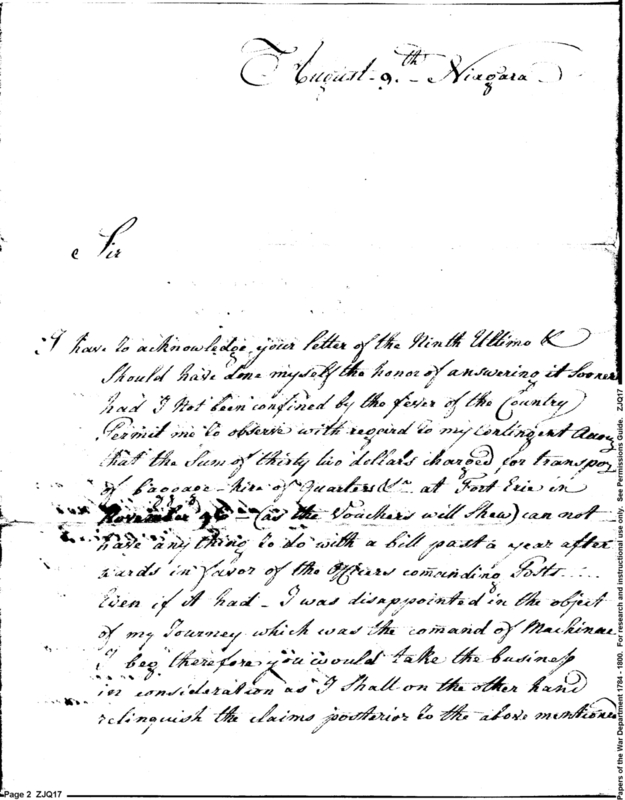 August 9.th Niagara
Sir
I have to acknowledge your letter of the Ninth Ultimo &
Should have done myself the honor of answering it Sooner
had I Not been confined by the fever of the Country
Permit me to observe with regard to my Contingent
that the Sum of thirty two dollars charged for transpor
of Baggage - hire of Quarters &c at Fort Erie in
November 96 - (as the Vouchers will Shew) can not
have any thing to do with a bill past a year after
wards in favor of the Officers comanding Posts.....
Even if it had - I was disappointed in the object
of my Journey which was the comand of Machinac
I beg therefore you would take the business
in consideration as I Shall on the other hand
relinquish the claims posterior to the above mentioned
Page 2 ZJQ17
Papers of the War Department 1784 - 1800. For research and instructional use only. See Permissions Guide. ZJQ17